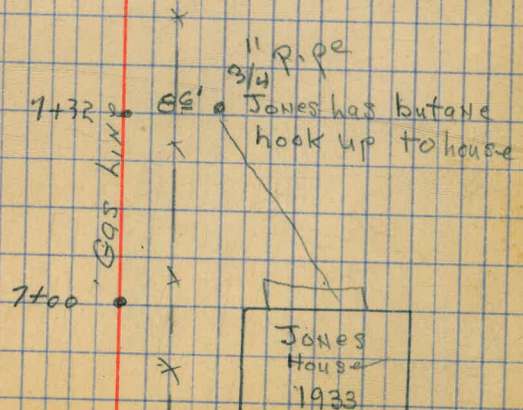 3/4" pipe
7+32 Jones has butane
hook up to house
Gas Line
7+00
Jones
House
1933